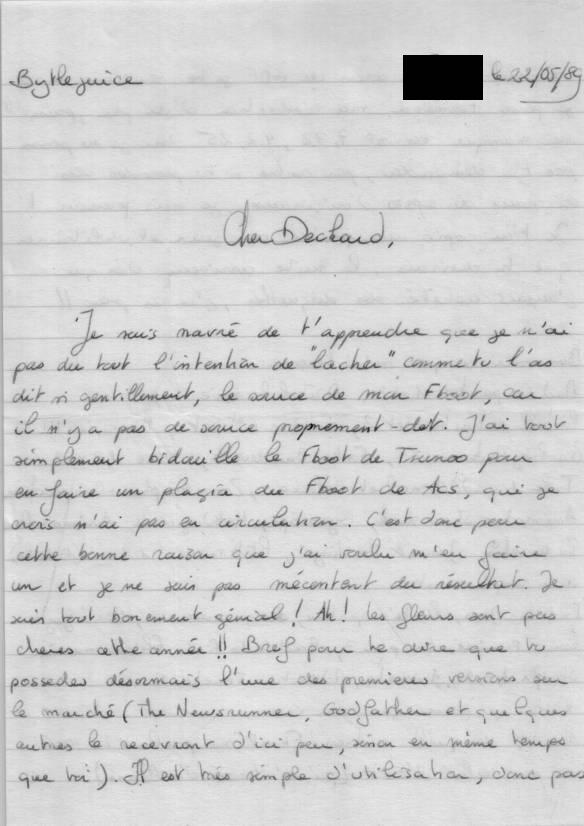 Bytlejuice le 22/05/89
Cher Deckard,
Je suis navré de t'apprendre que je n'ai
pas du tout l'intention de "lacher" comme tu l'as
dit si gentillement, le source de mon Fboot, car
il n'y a pas de source proprement-dit. J'ai tout
simplement bidouille le Fboot de Trunoo pour
en faire un plagia du Fboot de Acs, qui je
crois n'ai pas en circulation. C'est donc pour
cette bonne raison que j'ai voulu m'en faire
un et je ne suis pas mécontent du résultat. Je
suis tout bonement génial! Ah! les fleurs sont pas
cheres cette année!! Bref pour te dire que tu
possedes désormais l'une des premieres versions sur
le marché (The Newsrunner, Godfather et quelques
autres le recevront d'ici peu, sinon en même temps
que toi). Il est très simple d'utilisation, donc pas